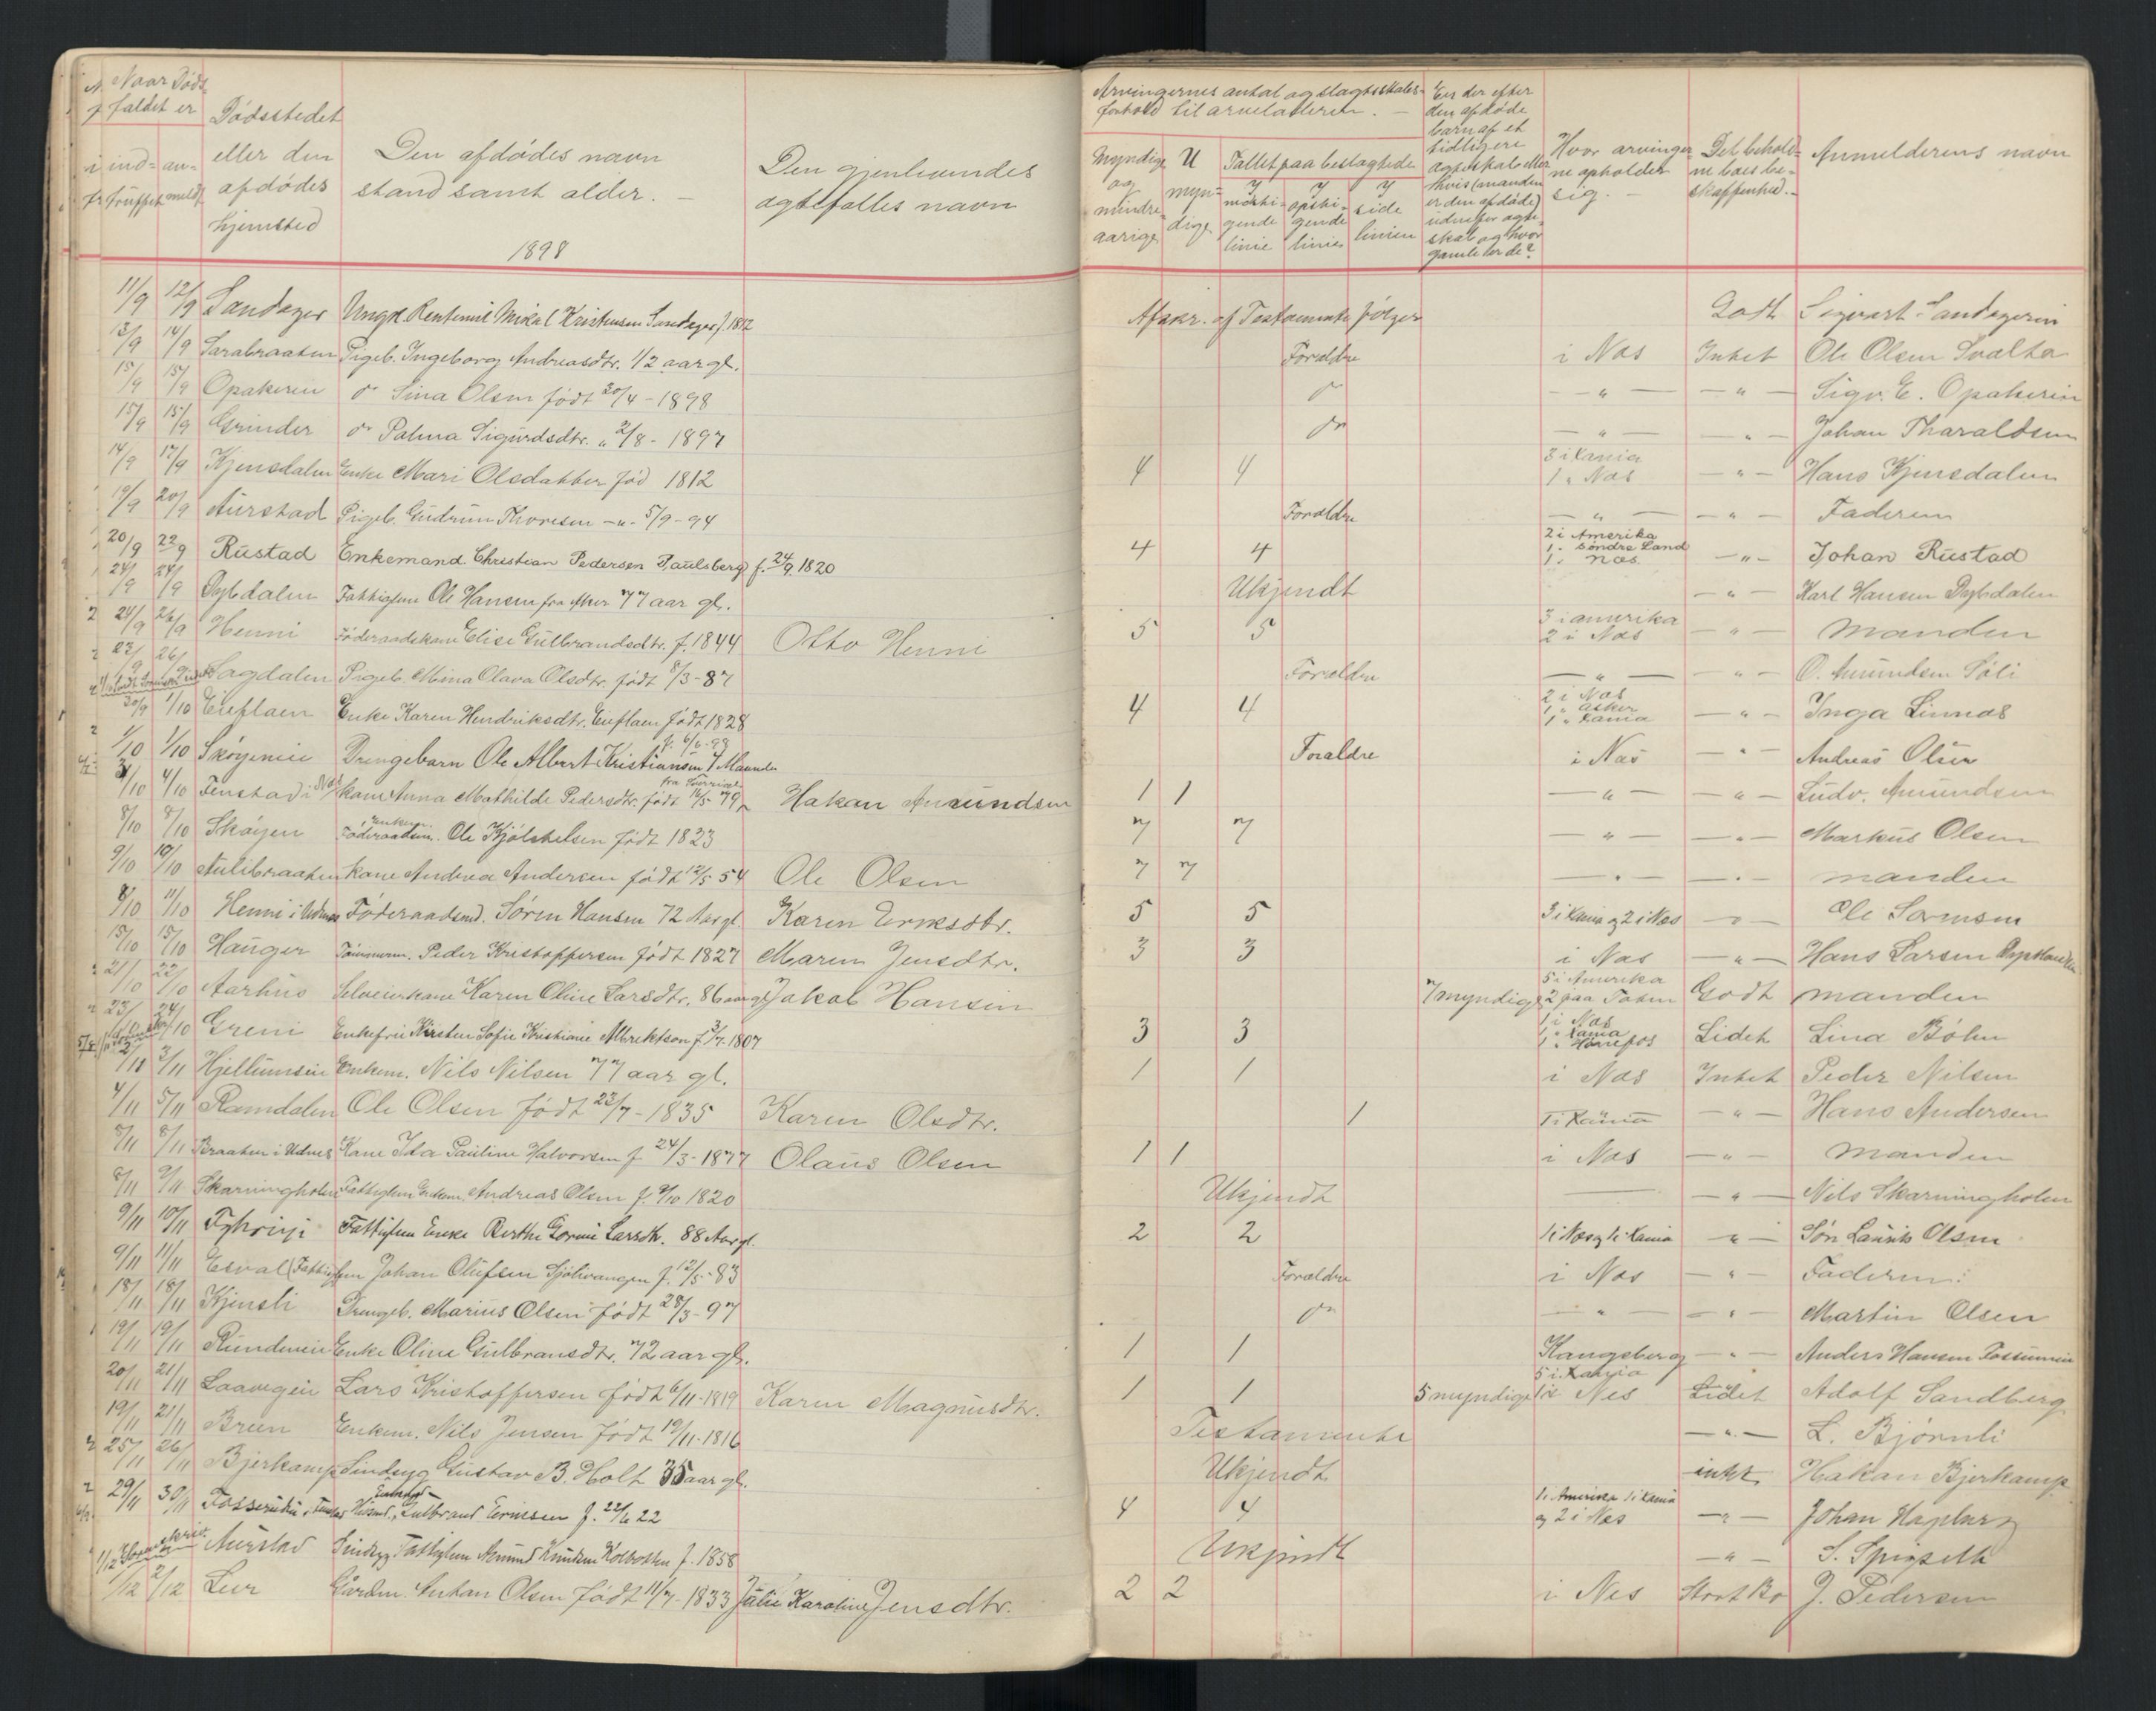 Naar Døds
faldet er
ind- an-
truffet meldt
Dødsstedet
eller den
afdødes
hjemsted
Den afdødes navn
stand samt alder. —
1898
Den gjenlevendes
ægtefælles navn
Arvingernes antal og slægtsskabs-
forhold til arveladeren. —
Myndige
og
mindre-
aarige
U
myn-
dige.
Tallet paa beslægtede
I
nedsti-
gende
linie
I
opsti-
gende
linie
I
side
linien
Er der efter
den afdøde
barn af et
tidligere
ægteskab eller
hvis (manden
er den afdøde)
udenfor ægte-
skab og hvor
gamle er de?
Hvor arvinger-
ne opholder
sig. —
Det behold-
ne boes be-
skaffenhed. —
Anmelderens navn
11/9 12/9 Sandager Ungk. Rentemil Mikal Kristensen Sandager f. 1812 Afskr. af Testamente følger Godt Sigvart Sandageren
13/9 14/9 Sarabraaten Pigeb. Ingeborg Andreasdtr. 1/2 aar gl. Forældre i Næs Intet Ole Olsen Svalta
15/9 15/9 Opakerie do Sina Olsen født 30/4 - 1898 do — " — — " — Sigv. E. Opakerie
15/9 15/9 Grinder do Palma Sigurdsdtr. " 2/8 - 1897 do — " — — " — Johan Tharaldsen
14/9 17/9 Kjensdalen Enke Mari Olsdatter fød 1812 4 4 3 i Kania 1 " Næs — " — Hans Kjensdalen
19/9 20/9 Aurstad Pigeb. Gudrun Thoresen — " - 5/9 - 94 Forældre — " — — " — Faderen
20/9 22/9 Rustad Enkemand Christian Pedersen Paulsberg f. 24/9 1820 4 4 2 i Amerika 1 " Søndre Land 1 " Næs — " — Johan Rustad
24/9 24/9 Dybdalen Fattiglem Ole Hansen fra Aker 77 aar gl. Ukjendt — " — Karl Hansen Dybdalen
24/9 26/9 Henni Føderaadskone Elise Gulbrandsdtr. f. 1844 Otto Henni 5 5 3 i amerika 2 i Næs — " — Manden
23/9 26/9 Sagdalen Pigeb. Mina Olava Olsdtr. født 8/3 - 87 Forældre — " — — " — O. Amundsen Søli
30/9 1/10 Eieflaen Enke Karen Hendriksdtr. Eieflaen født 1828 4 4 2 i Næs 1 " Asker 1 " Kania — " — Inga Linnæs
1/10 1/10 Skøyeneie Drengebarn Ole Albert Kristiansen f. 6/6-98 4 Maaneder Forældre i Næs — " — Andreas Olsen
3/10 4/10 Fenstad i Næs kone Anna Mathilde Pedersdtr. født 16/5 79 fra Sverrige Hakan Amundsen 1 1 — " — — " — Ludv. Amundsen
8/10 8/10 Skøyen Enkem. Føderaadsm. Ole Kjølstelsen født 1823 7 7 — " — — " — Markus Olsen
9/10 10/10 Aulibraaten kone Andrea Andersen født 12/5 54 Ole Olsen 7 7 — " — — " — manden
8/10 11/10 Henni i Udenes Føderaadsmd. Søren Hansen 72 Aar gl. Karen Eriksdtr. 5 5 3 i Kania og 2 i Næs — " — Ole Sørensen
15/10 15/10 Hauger Tømmerm. Peder Kristoffersen født 1827 Maren Jensdtr. 3 3 i Næs — " — Hans Larsen
21/10 22/10 Aarhus Selveierkone Karen Oline Larsdtr. 86 aar gl. Jakob Hansen 7 myndige 5 i Amerika 2 paa Toten Godt manden
23/10 24/10 Greni Enkefru Kirsten Sofie Kristiane Albrektson f. 3/7 - 1807 3 3 1 i Næs 1 " Kania 1 " Hønefos Lidet Lina Bøhn
2/11 3/11 Hjellumseie Enkem. Nils Nilsen 77 aar gl. 1 1 i Næs Intet Peder Nilsen
4/11 5/11 Ramdalen Ole Olsen født 23/7 - 1835 Karen Olsdtr. 1 1 i Kania — " — Hans Andersen
8/11 8/11 Braaten i Udnes Kone Ida Pauline Halvorsen f. 24/3 - 1877 Olaus Olsen 1 1 i Næs — " — Manden
8/11 9/11 Skarningholen Fattiglem Enkem. Andreas Olsen f. 9/10 1820 Ukjendt — — " — Nils Skarningholen
9/11 10/11 Fattiglem Enke Berthe Gorine Larsdtr. 88 Aar gl. 2 2 1 i Næs og 1 i Kania — " — Søn Laurits Olsen
9/11 11/11 Esval (Fattiglem Johan Olufsen Sjølivangen f. 12/5 - 83 Forældre i Næs — " — Faderen
18/11 18/11 Kjensli Drengeb. Marius Olsen født 28/3 - 97 do — " — — " — Martin Olsen
19/11 19/11 Rundeneie Enke Oline Gulbransdtr. 72 aar gl. 1 1 Kongsberg — " — Anders Hansen Fossumeie
20/11 21/11 Laavegeie Lars Kristoffersen født 6/11 - 1819 Karen Magnusdtr. 1 1 5 myndige 5 i Kania 1 i Nes Lidet Adolf Sandberg
19/11 21/11 Breen Enkem. Nils Jensen født 19/11 - 1816 Testamente — " — L. Bjørnli
25/11 26/11 Bjerkamp Sindsyg Gustav B. Holt 35 aar gl. Ukjendt intet Hakan Bjerkamp
29/11 30/11 Fosserudeie Husmd. Enkemd Gulbrand Ernisen f. 22/6 22 4 4 1 i Amerika 1 i Kania og 2 i Næs — " — Johan Haglund
Aurstad Sindsyg Fattiglem Amund Knudsen Kolbotten f. 1858 Ukjendt — " — S. Spigseth
1/12 2/12 Leer Gaardm. Anhan Olsen født 11/7 - 1833 Julie Karoline Jensdtr. 2 2 i Nes Stort Bo J. Pedersen